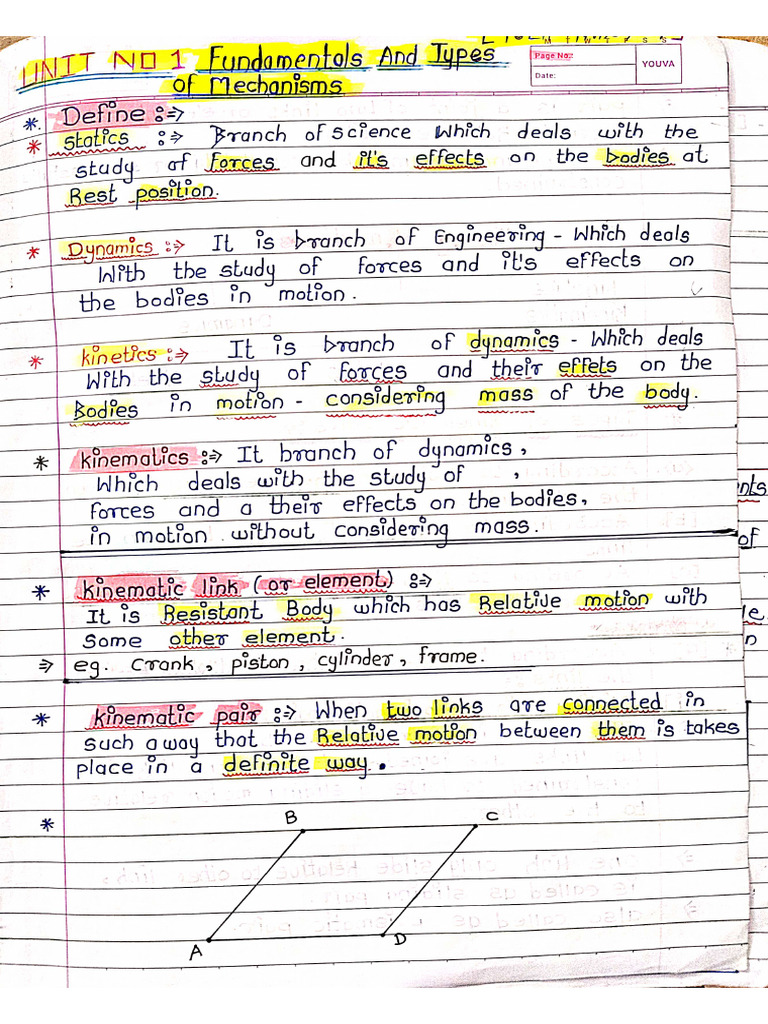 M T W T F S S
Page No.:
Date:
YOUVA
UNIT NO 1 Fundamentals And Types
of Mechanisms
*. Define :⇒
* Statics :⇒ Branch of science Which deals with the
study of forces and it's effects on the bodies at
Rest position.
* Dynamics :⇒ It is branch of Engineering - Which deals
With the study of forces and it's effects on
the bodies in motion.
* kinetics :⇒ It is branch of dynamics - Which deals
With the study of forces and their effets on the
Bodies in motion - considering mass of the body.
* kinematics :⇒ It branch of dynamics,
Which deals with the study of ,
forces and a their effects on the bodies,
in motion without considering mass.
* kinematic link (or element) :⇒
It is Resistant Body which has Relative motion with
some other element.
⇒ eg. Crank, piston, cylinder, frame.
* kinematic pair :⇒ When two links are connected in
such a way that the Relative motion between them is takes
place in a definite way.
*
B C
A D
nts
of
le.
n